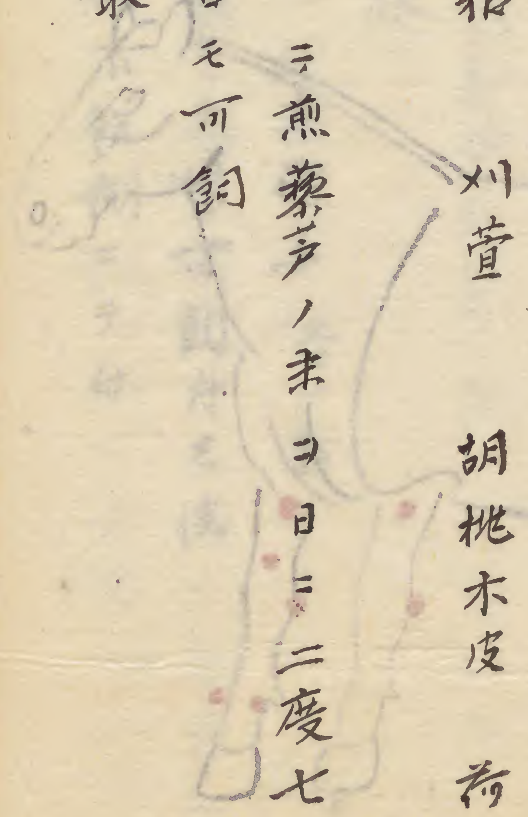 刈萱 胡桃木皮 荷
ニ煎藜芦ノ末ヲ日ニ二度七
モ可飼